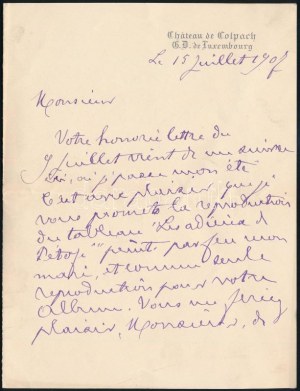 Château de Colpach
G.D. de Luxembourg
Le 15 Juillet 190
Monsieur
Votre honorée lettre du
9 Juillet vient de me suivre
ici, où je passe mon été
C'est avec plaisir que je
vous promets la reproduction
du tableau "Les adieux de
Pétőfi" peint par feu mon
mari, et comme seule
reproduction pour votre
Album. Vous me feriez
plaisir, Monsieur, de